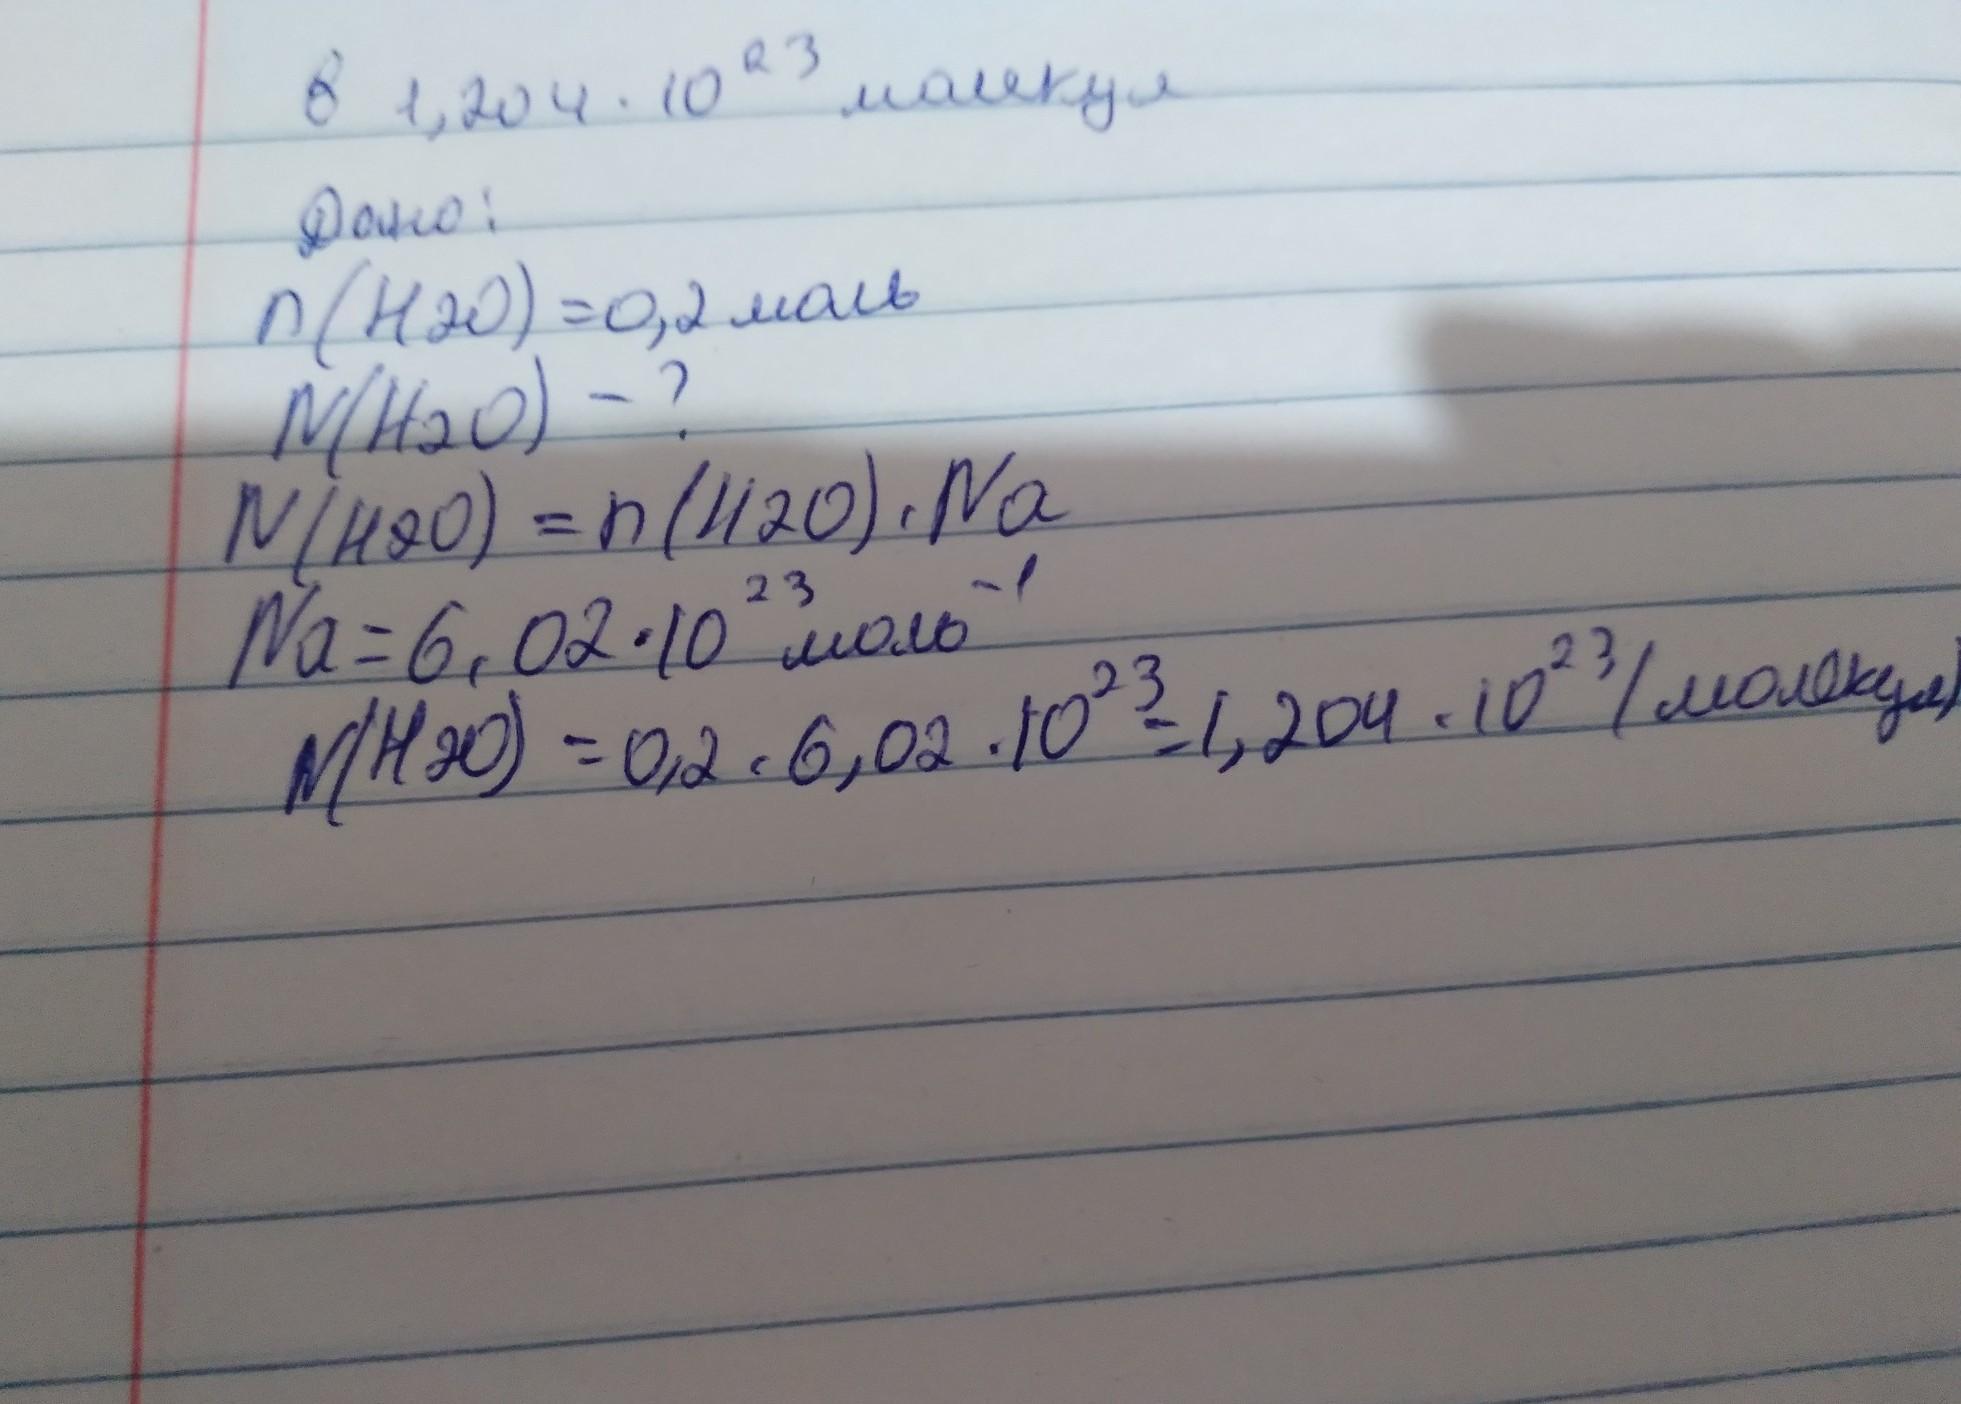 в 1,204 · 10²³ молекул
Дано:
n(H2O) = 0,2 моль
N(H2O) - ?
N(H2O) = n(H2O) · Na
Na = 6,02 · 10²³ моль⁻¹
N(H2O) = 0,2 · 6,02 · 10²³ = 1,204 · 10²³ (молекул)